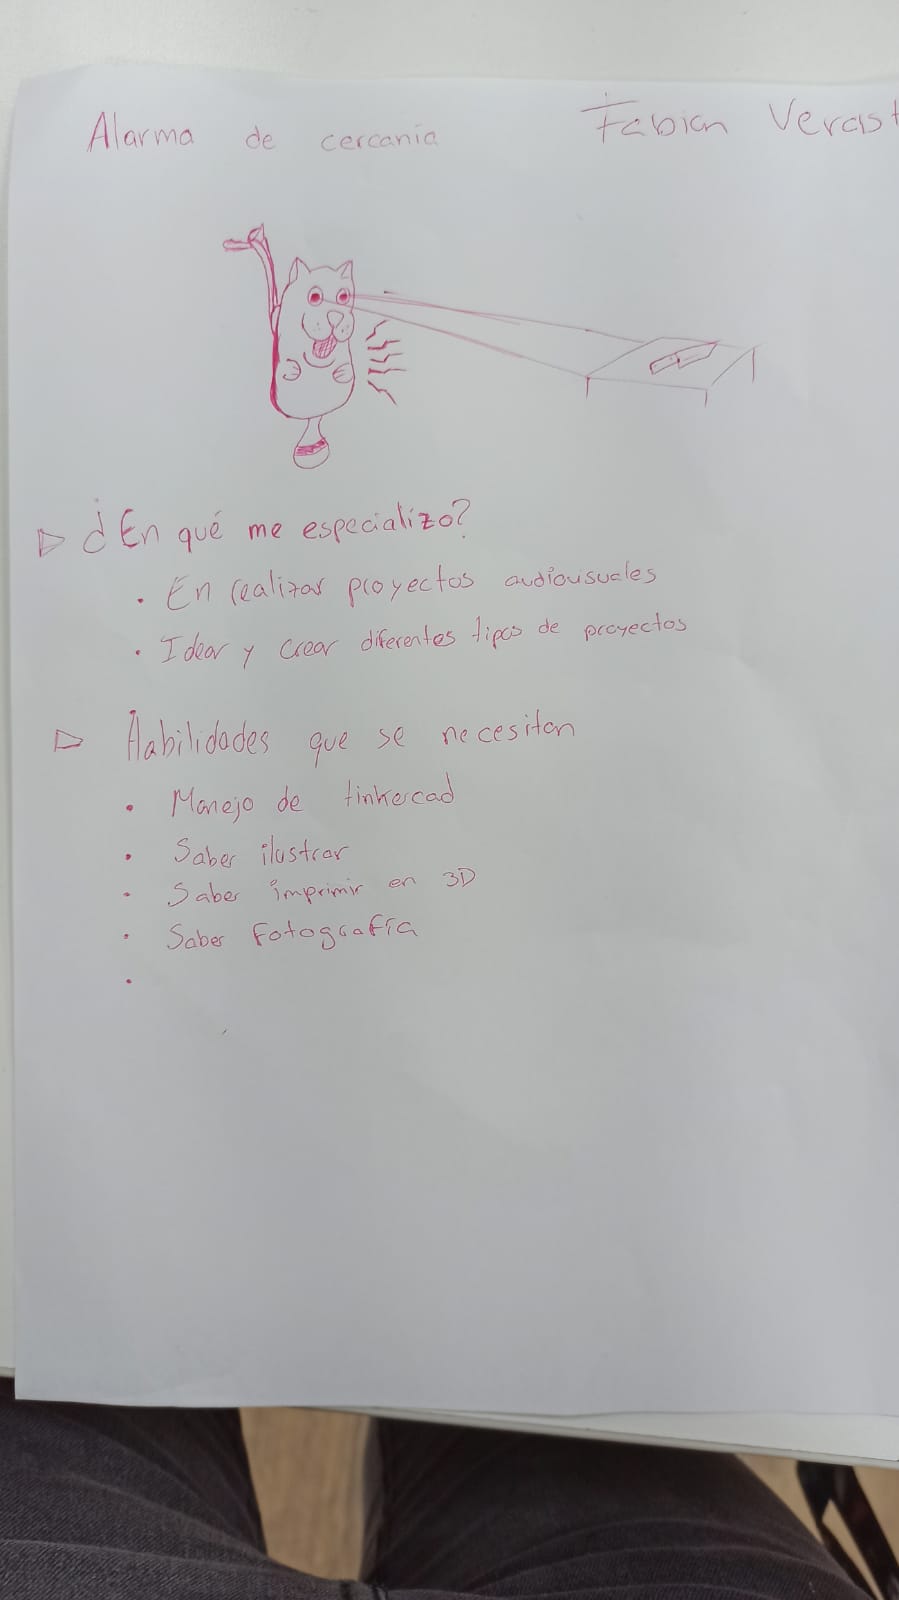 Alarma de cercanía
Fabian Verast
¿En qué me especializo?
• En realizar proyectos audiovisuales
• Idear y crear diferentes tipos de proyectos
Habilidades que se necesitan
• Manejo de tinkercad
• Saber ilustrar
• Saber imprimir en 3D
• Saber Fotografía
•